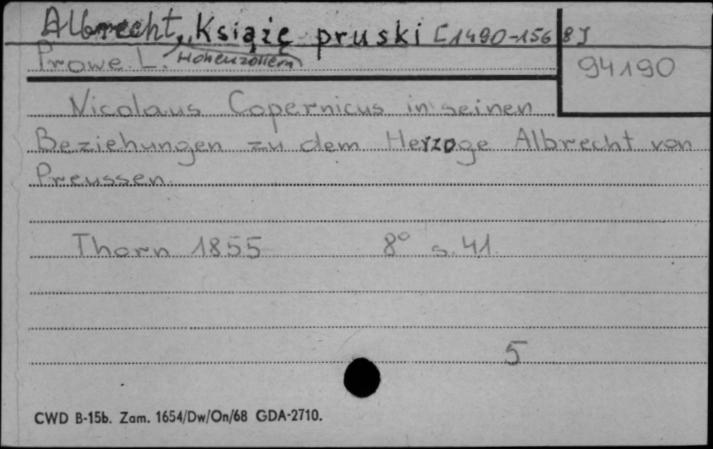 Albrecht, Książę pruski [1490-1568]
Hohenzollern
Prowe L.
94190
Nicolaus Copernicus in seinen
Beziehungen zu dem Herzoge Albrecht von
Preussen
Thorn 1855 8° s. 41.
5
CWD B-15b. Zam. 1654/Dw/On/68 GDA-2710.